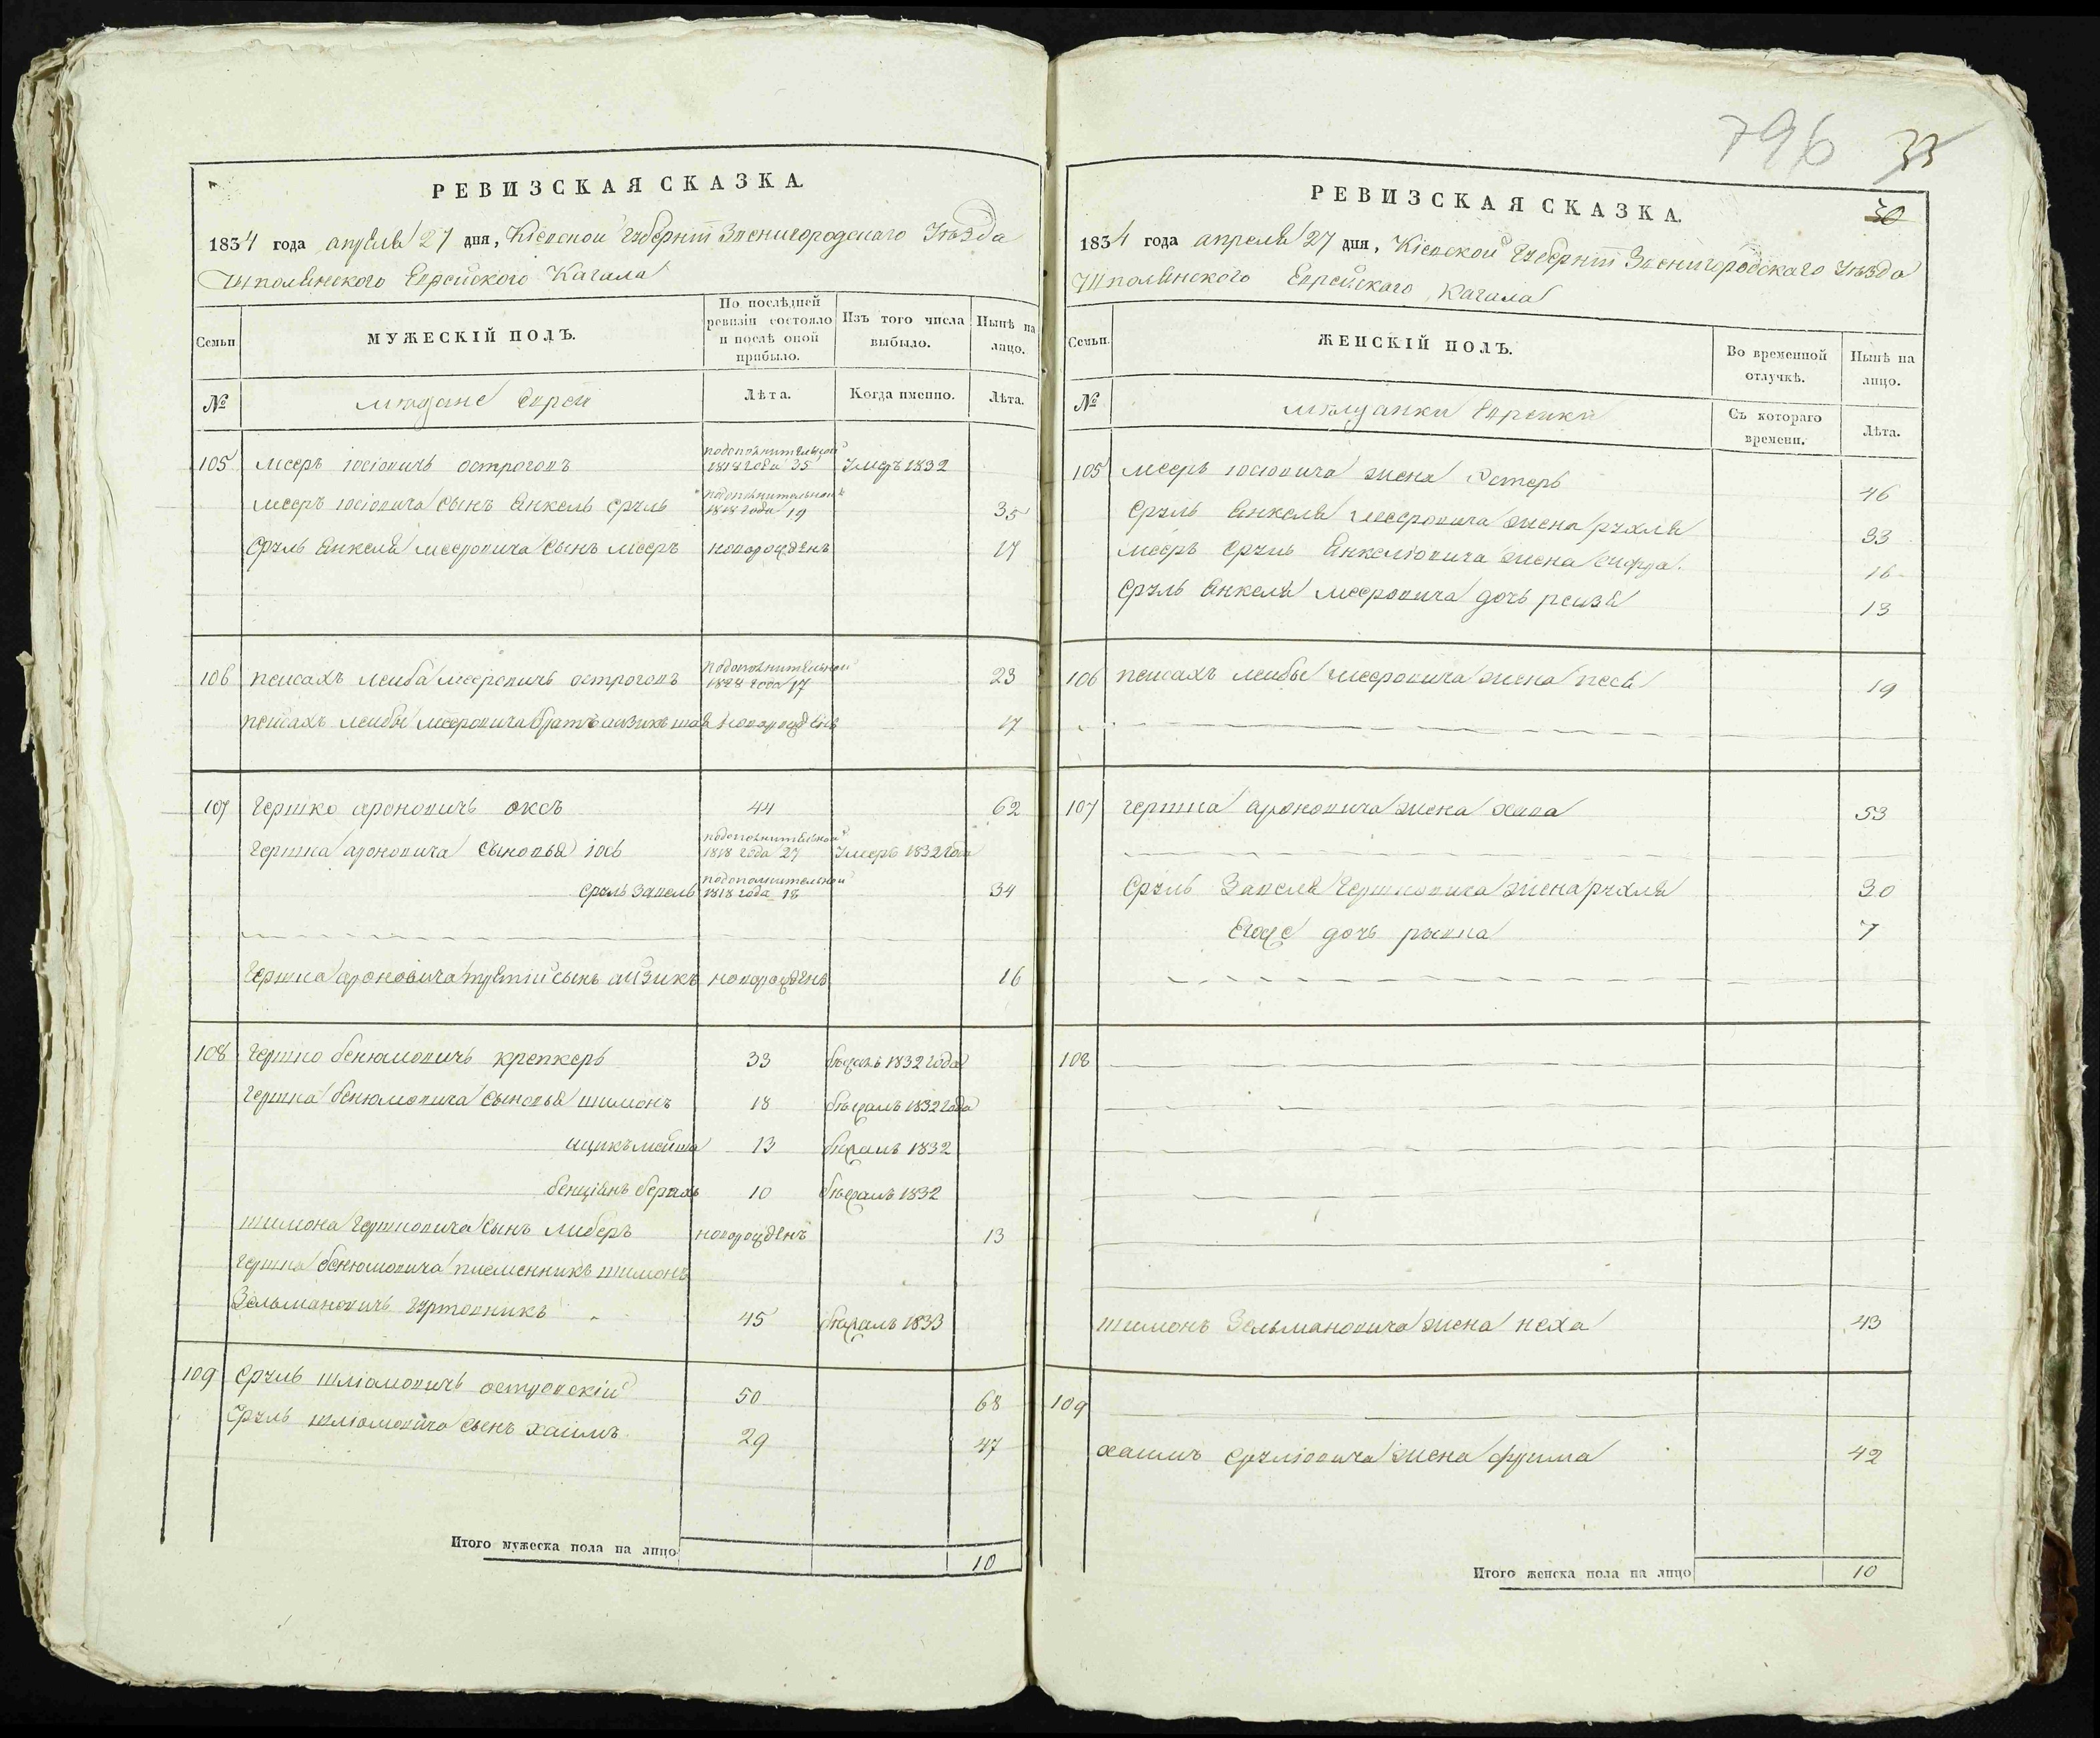 РЕВИЗСКАЯ СКАЗКА.
1834 года апреля 27 дня, Кіевской Губерніи Звенигородскаго Уѣзда
Шполянского Еврейского Кагала
Семьи
МУЖЕСКІЙ ПОЛЪ.
По послѣдней ревизіи состояло и послѣ оной прибыло.
Изъ того числа выбыло.
Нынѣ на лицо.
№
мѣщане евреи
Лѣта.
Когда именно.
Лѣта.
105 меєръ іосіовичъ острогонъ подополнительной 1818 года 35 Умеръ 1832
меєръ іосіовича сынъ Янкель сруль подополнительной 1818 года 19 35
Сруль Янкеля меєровича сынъ меєръ новорожденъ 17
106 пейсахъ лейба меєровичъ острогонъ подополнительной 1828 года 17 23
пейсахъ лейбы меєровича братъ айзикъ шая новорожденъ 17
107 Гершко ароновичъ оксъ 44 62
Гершка ароновича сыновья іось подополнительной 1818 года 27 Умеръ 1832 года
сруль Завель подополнительной 1818 года 18 34
Гершка ароновича третій сынъ айзикъ новорожденъ 16
108 Гершко бенюмовичъ крепкеръ 33 бѣжалъ 1832 года
Гершка бенюмовича сыновья шимонъ 18 бѣжалъ 1832 года
ицикъ мейша 13 бѣжалъ 1832
бенціянъ берахъ 10 бѣжалъ 1832
шимона Гершковича сынъ либеръ новорожденъ 13
Гершка бенюмовича племенникъ шимонъ
Зельмановичъ Гуртовникъ 45 бѣжалъ 1833
109 Сруль шліомовичъ островскій 50 68
Сруль шліомовича сынъ хаимъ 29 47
Итого мужеска пола на лицо 10
796 33
30
РЕВИЗСКАЯ СКАЗКА.
1834 года апреля 27 дня, Кіевской Губерніи Звенигородскаго Уѣзда
Шполянского Еврейскаго Кагала
Семьи.
ЖЕНСКІЙ ПОЛЪ.
Во временной отлучкѣ.
Нынѣ на лицо.
№
мѣщанки Еврейки
Съ котораго времени.
Лѣта.
105 меєръ іосіовича жена Эстеръ 46
Сруль Янкеля меєровича жена рухля 33
меєръ сруль Янкеліовича жена сифра 16
Сруль Янкеля меєровича дочь рейзя 13
106 пейсахъ лейбы меєровича жена песя 19
107 гершка ароновича жена хава 53
Сруль Завеля Гершковича жена рухля 30
Егоже дочь рывка 7
108
шимонъ Зельмановича жена неха 43
109
хаимъ срулiовича жена фрима 42
Итого женска пола на лицо 10